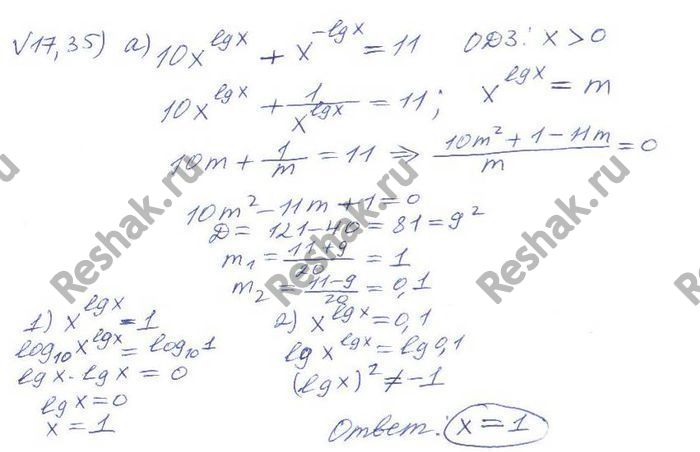 √17,35) а) 10x^{lgx} + x^{-lgx} = 11 ОДЗ: x > 0
10x^{lgx} + \frac{1}{x^{lgx}} = 11; x^{lgx} = m
10m + \frac{1}{m} = 11 ⇒ \frac{10m² + 1 - 11m}{m} = 0
10m² - 11m + 1 = 0
Д = 121 - 40 = 81 = 9²
m₁ = \frac{11+9}{20} = 1
m₂ = \frac{11-9}{20} = 0,1
1) x^{lgx} = 1
log₁₀x^{lgx} = log₁₀1
lgx · lgx = 0
lgx = 0
x = 1
2) x^{lgx} = 0,1
lgx^{lgx} = lg0,1
(lgx)² ≠ -1
Ответ: x = 1
Reshak.ru
Reshak.ru
Reshak.ru
Reshak.ru